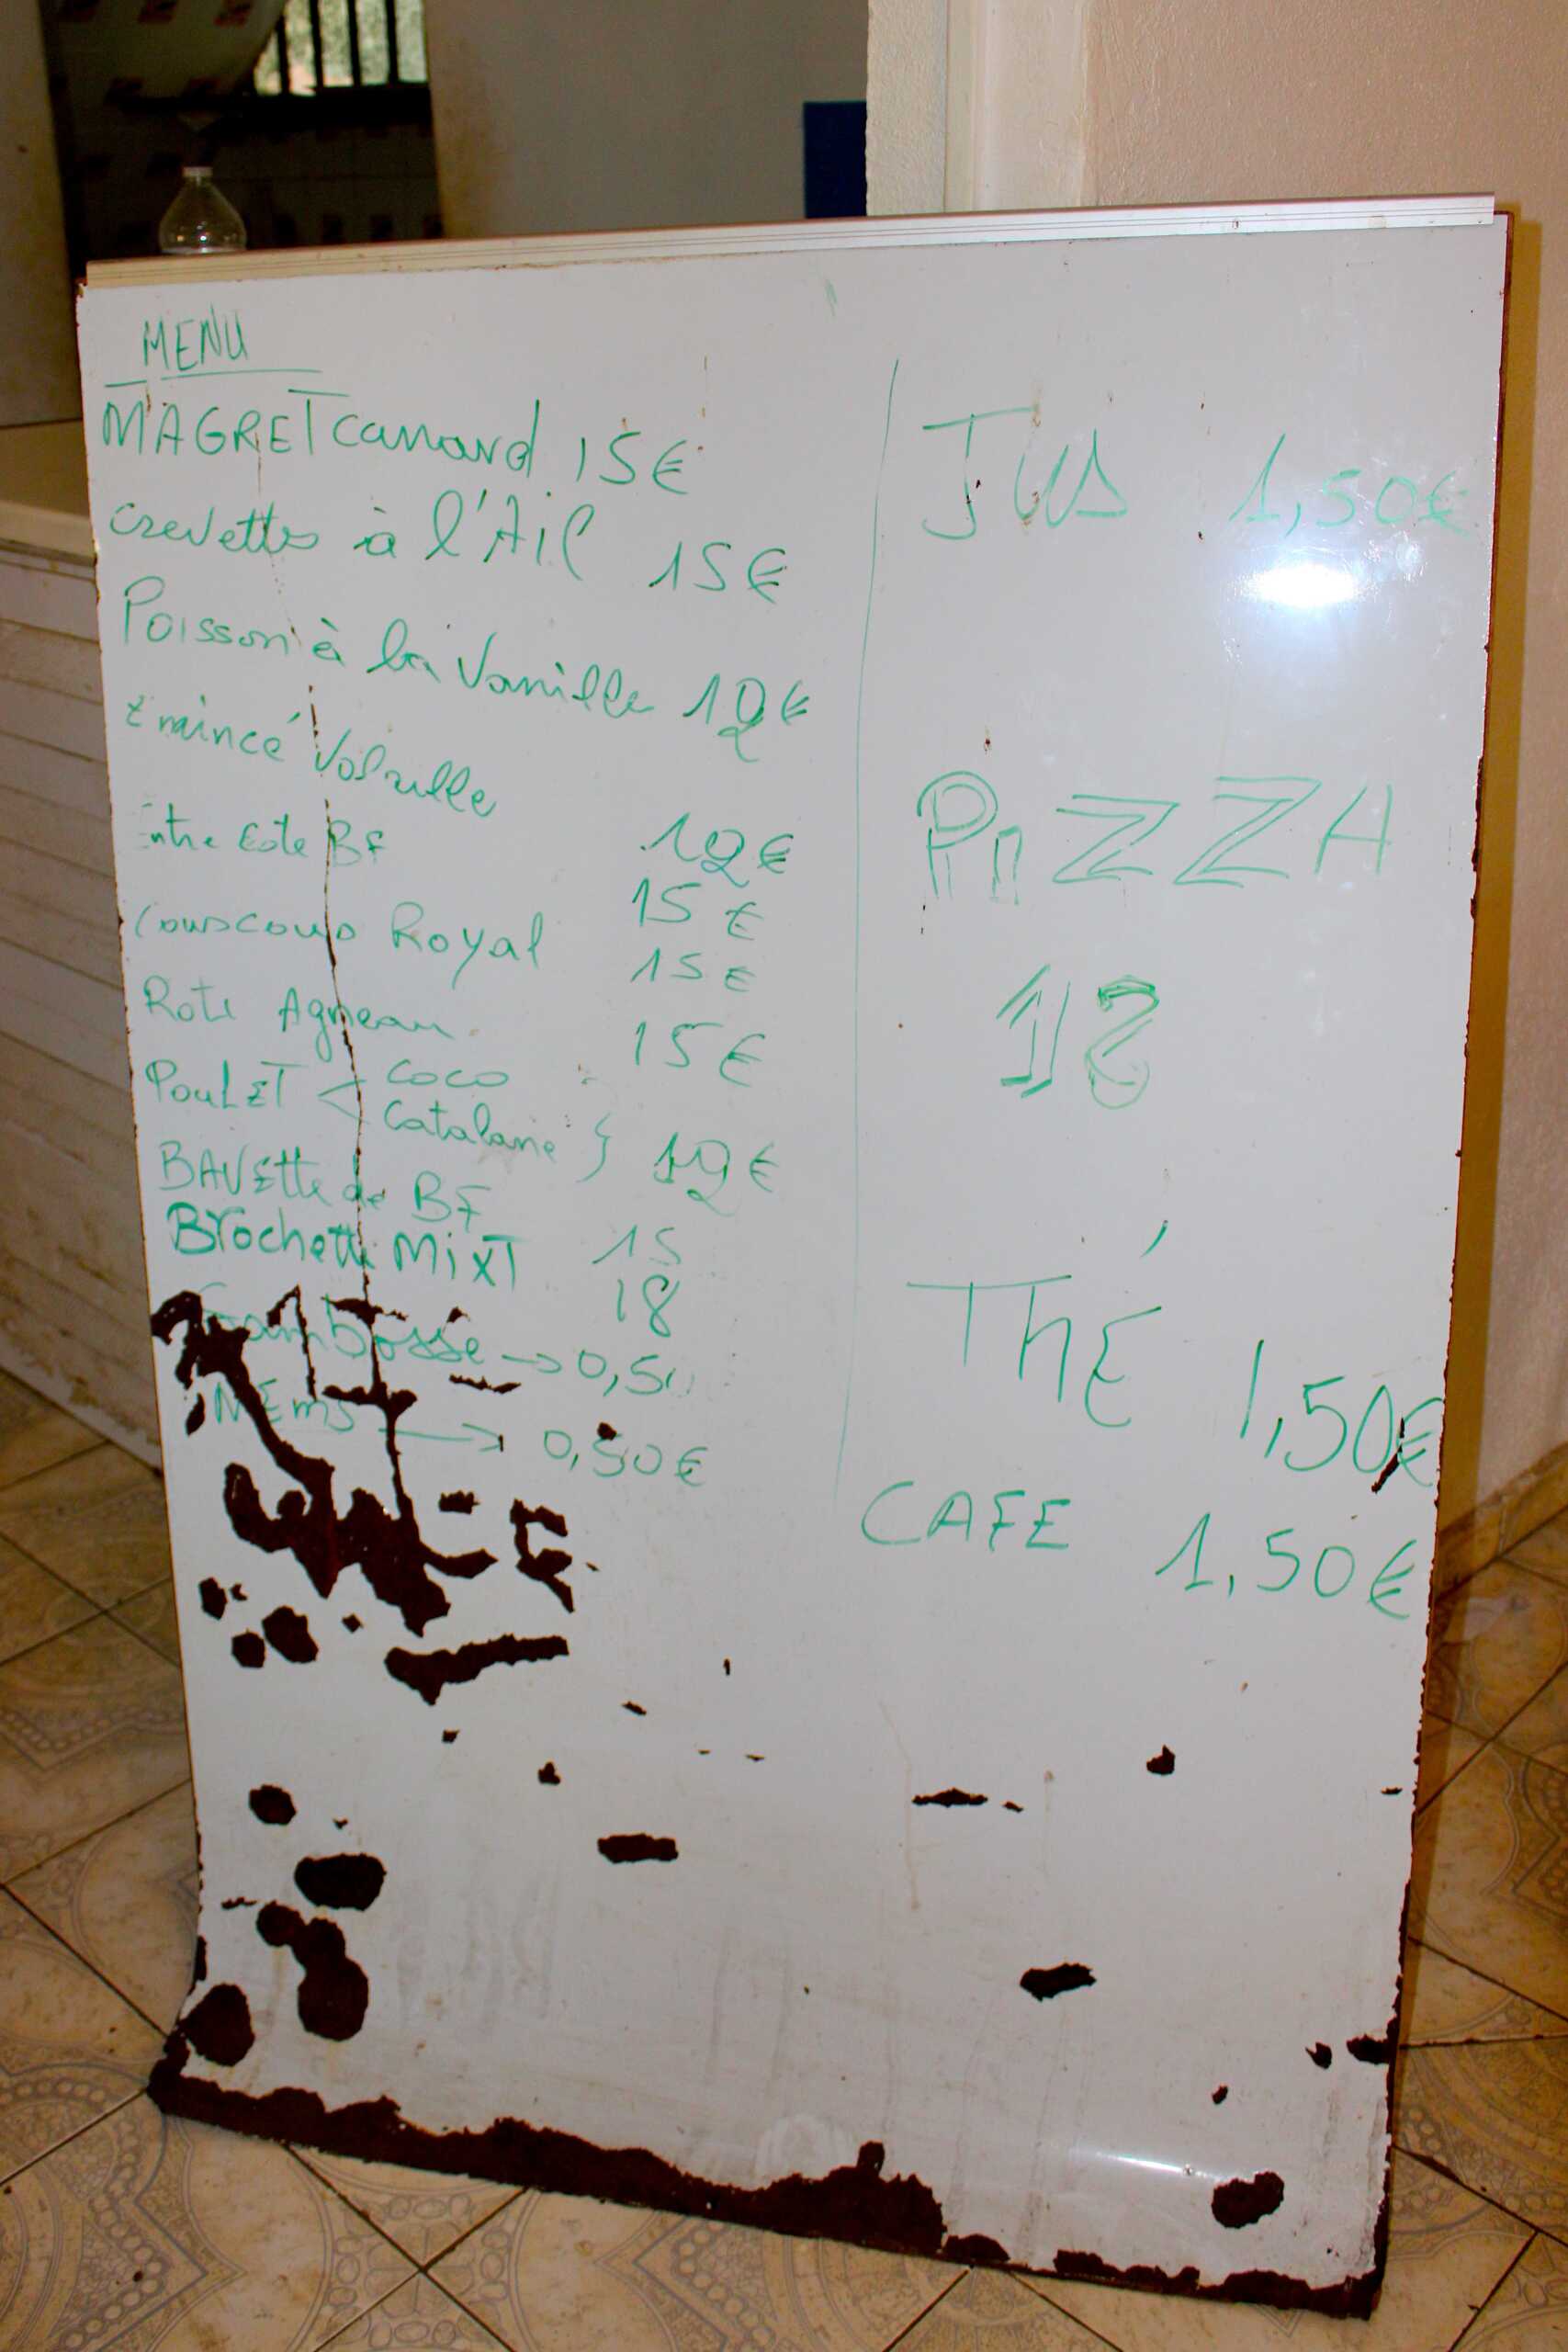 MENU
MAGRET canard 15€
crevettes à l'Ail 15€
Poisson à la Vanille 12€
Emincé Volaille 12€
Entre Cote BF 15€
Couscous Royal 15€
Roti Agneau 15€
PouLET < Coco
Catalane } 12€
BAVEtte de BF 15
Brochette MixT 18
→ 0,50
NEms → 0,50€
Jus 1,50€
PIZZA
12
ThÉ 1,50€
CAFE 1,50€